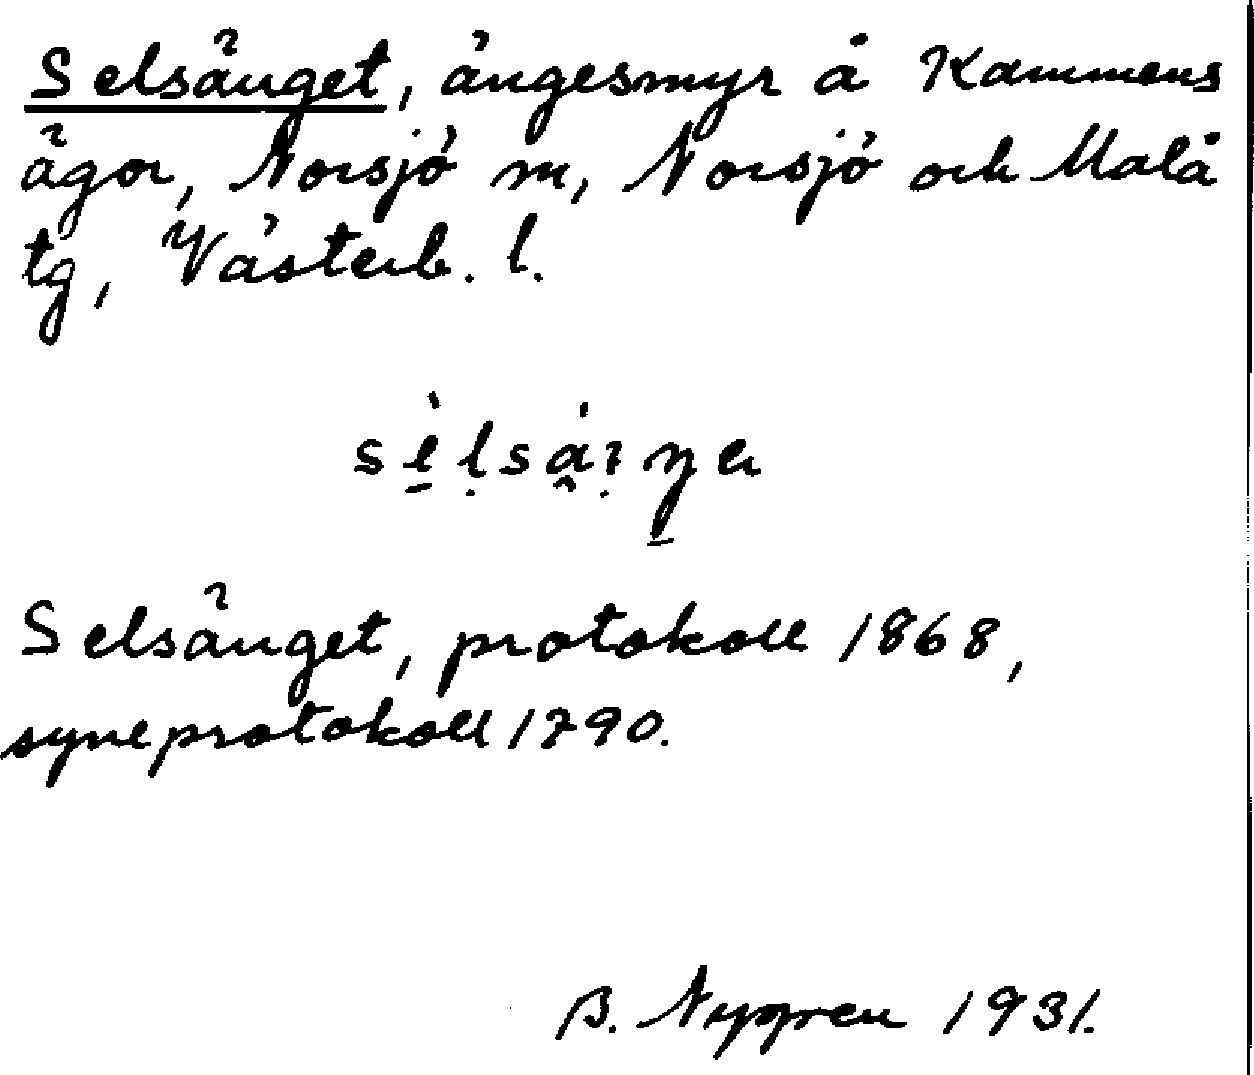 Selsänget, ängesmyr å Kammens
ägor, Norsjö m, Norsjö och Malå
tg, Västerb. l.
Selsänget, protokoll 1868,
syneprotokoll 1790.
B. Nygren 1931.